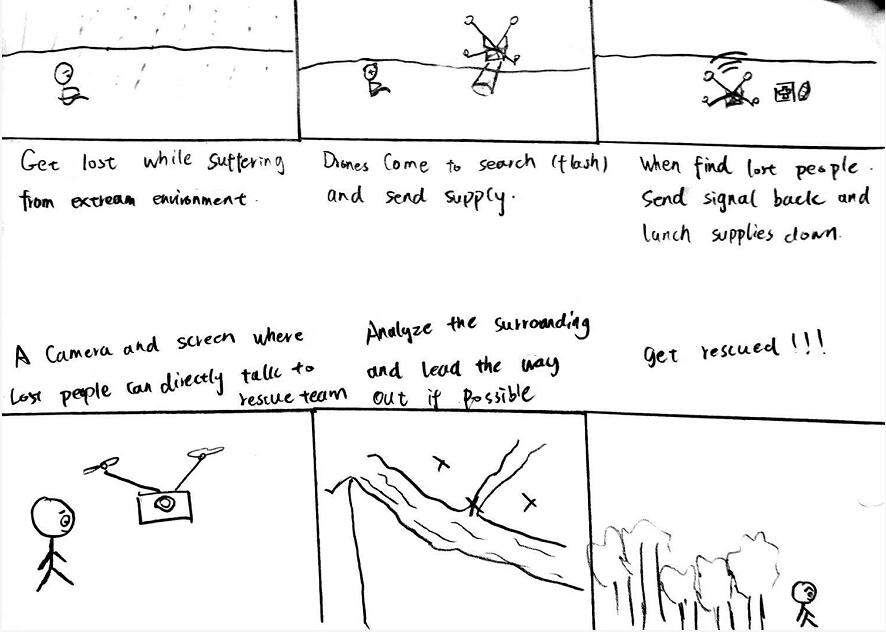 Get lost while suffering
from extream environment.
Drones Come to search (flash)
and send supply.
When find lost people.
Send signal back and
lunch supplies down.
A Camera and screen where
Lost people can directly talk to
rescue team
Analyze the surrounding
and lead the way
out if possible
Get rescued !!!